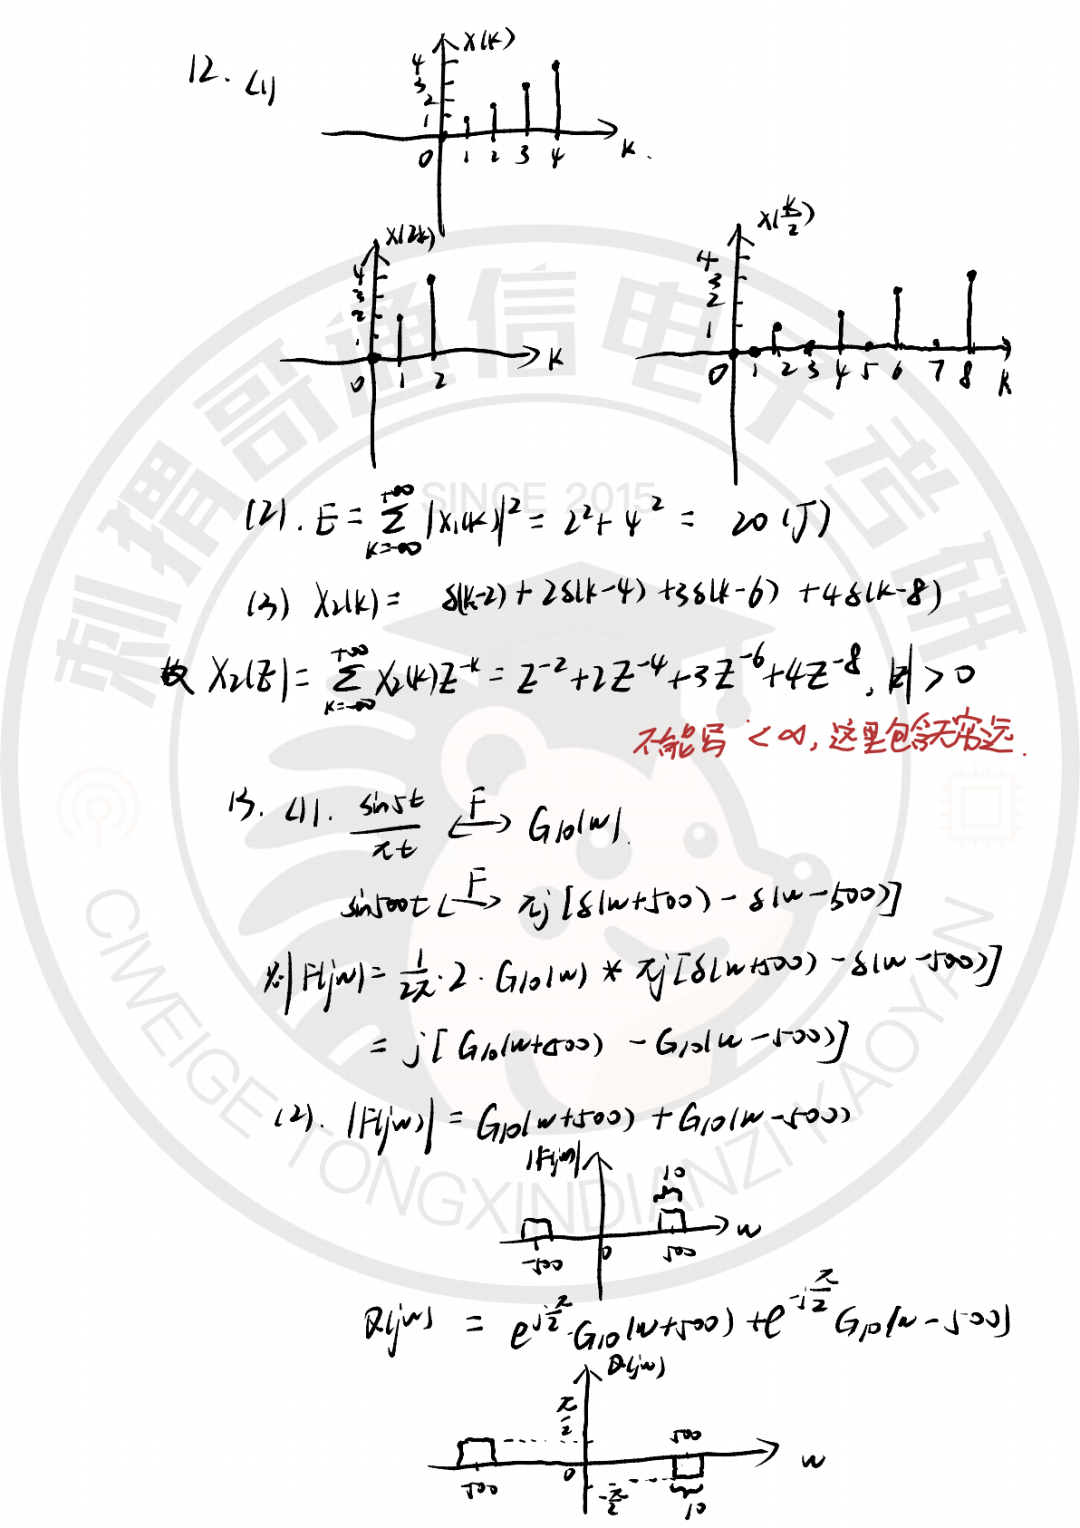 12. (1)
x(k)
4
3
2
1
0 1 2 3 4 k.
x(2k)
4
3
2
1
0 1 2 k
x(k/2)
4
3
2
1
0 1 2 3 4 5 6 7 8 k
(2). E = ∑_{k=-∞}^{+∞} |x₁(k)|² = 2² + 4² = 20 (J)
(3) x₂(k) = δ(k-2) + 2δ(k-4) + 3δ(k-6) + 4δ(k-8)
故 X₂(z) = ∑_{k=-∞}^{+∞} x₂(k) z^{-k} = z^{-2} + 2z^{-4} + 3z^{-6} + 4z^{-8}, |z| > 0
不能写 < ∞, 这里包含无穷远.
13. (1). sin5t/πt ⟷F G₁₀(w).
sin500t ⟷F πj [δ(w+500) - δ(w-500)]
则 F(jw) = 1/2π · 2 · G₁₀(w) * πj [δ(w+500) - δ(w-500)]
= j [G₁₀(w+500) - G₁₀(w-500)]
(2). |F(jw)| = G₁₀(w+500) + G₁₀(w-500)
|F(jw)|
10
-500 0 500 w
Q(jw) = e^{jπ/2} · G₁₀(w+500) + e^{-jπ/2} G₁₀(w-500)
Q(jw)
π/2
500
500 0 w
-π/2 10
刺猬哥通信电子考研
SINCE 2015
CIWEIGE TONGXINDIANZI KAOYAN